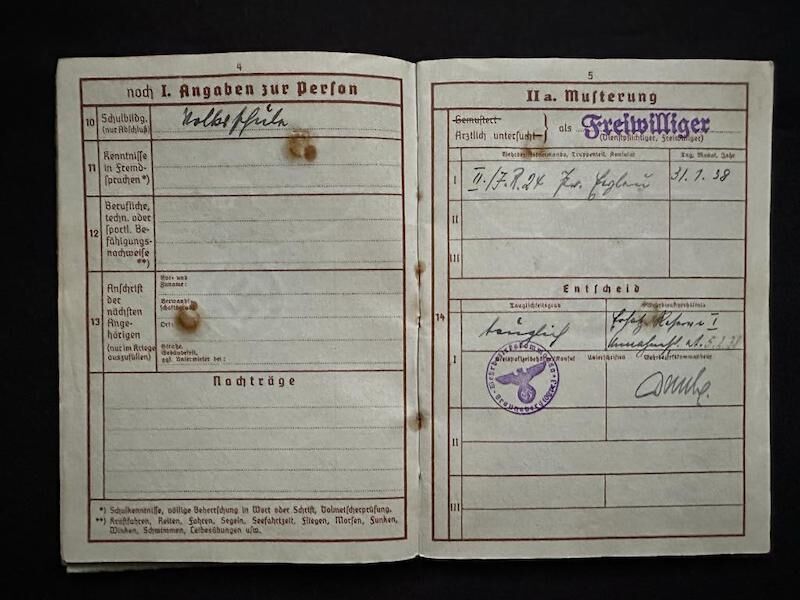 4
noch I. Angaben zur Person
10 Schulbildg. (nur Abschluß)
Volksschule
11 Kenntnisse in Fremd-sprachen*)
12 Berufliche, techn. oder sportl. Be-fähigungs-nachweise **)
13 Anschrift der nächsten Ange-hörigen (nur im Kriege auszufüllen)
Vor- und Zuname:
Verwandt-schaftsgrad:
Ort:
Straße, Gebäudeteil, ggf. Untermieter bei:
Nachträge
*) Schulkenntnisse, völlige Beherrschung in Wort oder Schrift, Dolmetscherprüfung.
**) Kraftfahren, Reiten, Fahren, Segeln, Seefahrtzeit, Fliegen, Morsen, Funken,
Winken, Schwimmen, Leibesübungen usw.
5
II a. Musterung
Gemustert
Ärztlich untersucht } als Freiwilliger
(Dienstpflichtiger, Freiwilliger)
Wehrbezirkskommando, Truppenteil, Konsulat
Tag, Monat, Jahr
I
II./J.R.24
31.1.38
II
III
Entscheid
14
Tauglichkeitsgrad
Wehrdienstverhältnis
tauglich
Ersatz Reserve I
5.2.38
I
Kreispolizeibehörde, Konsul
Unterschriften
Wehrbezirkskommandeur
Wehrbezirkskommando Braunsberg (Ostpr.)
II
III